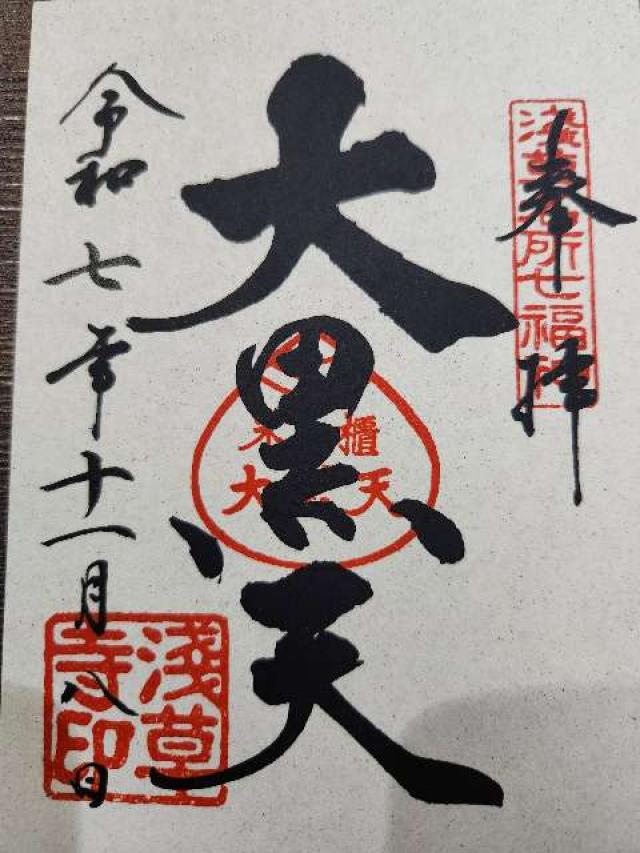 奉拝
浅草名所七福神
大黒天
米櫃
大黒天
令和七年十一月八日
淺草
寺印